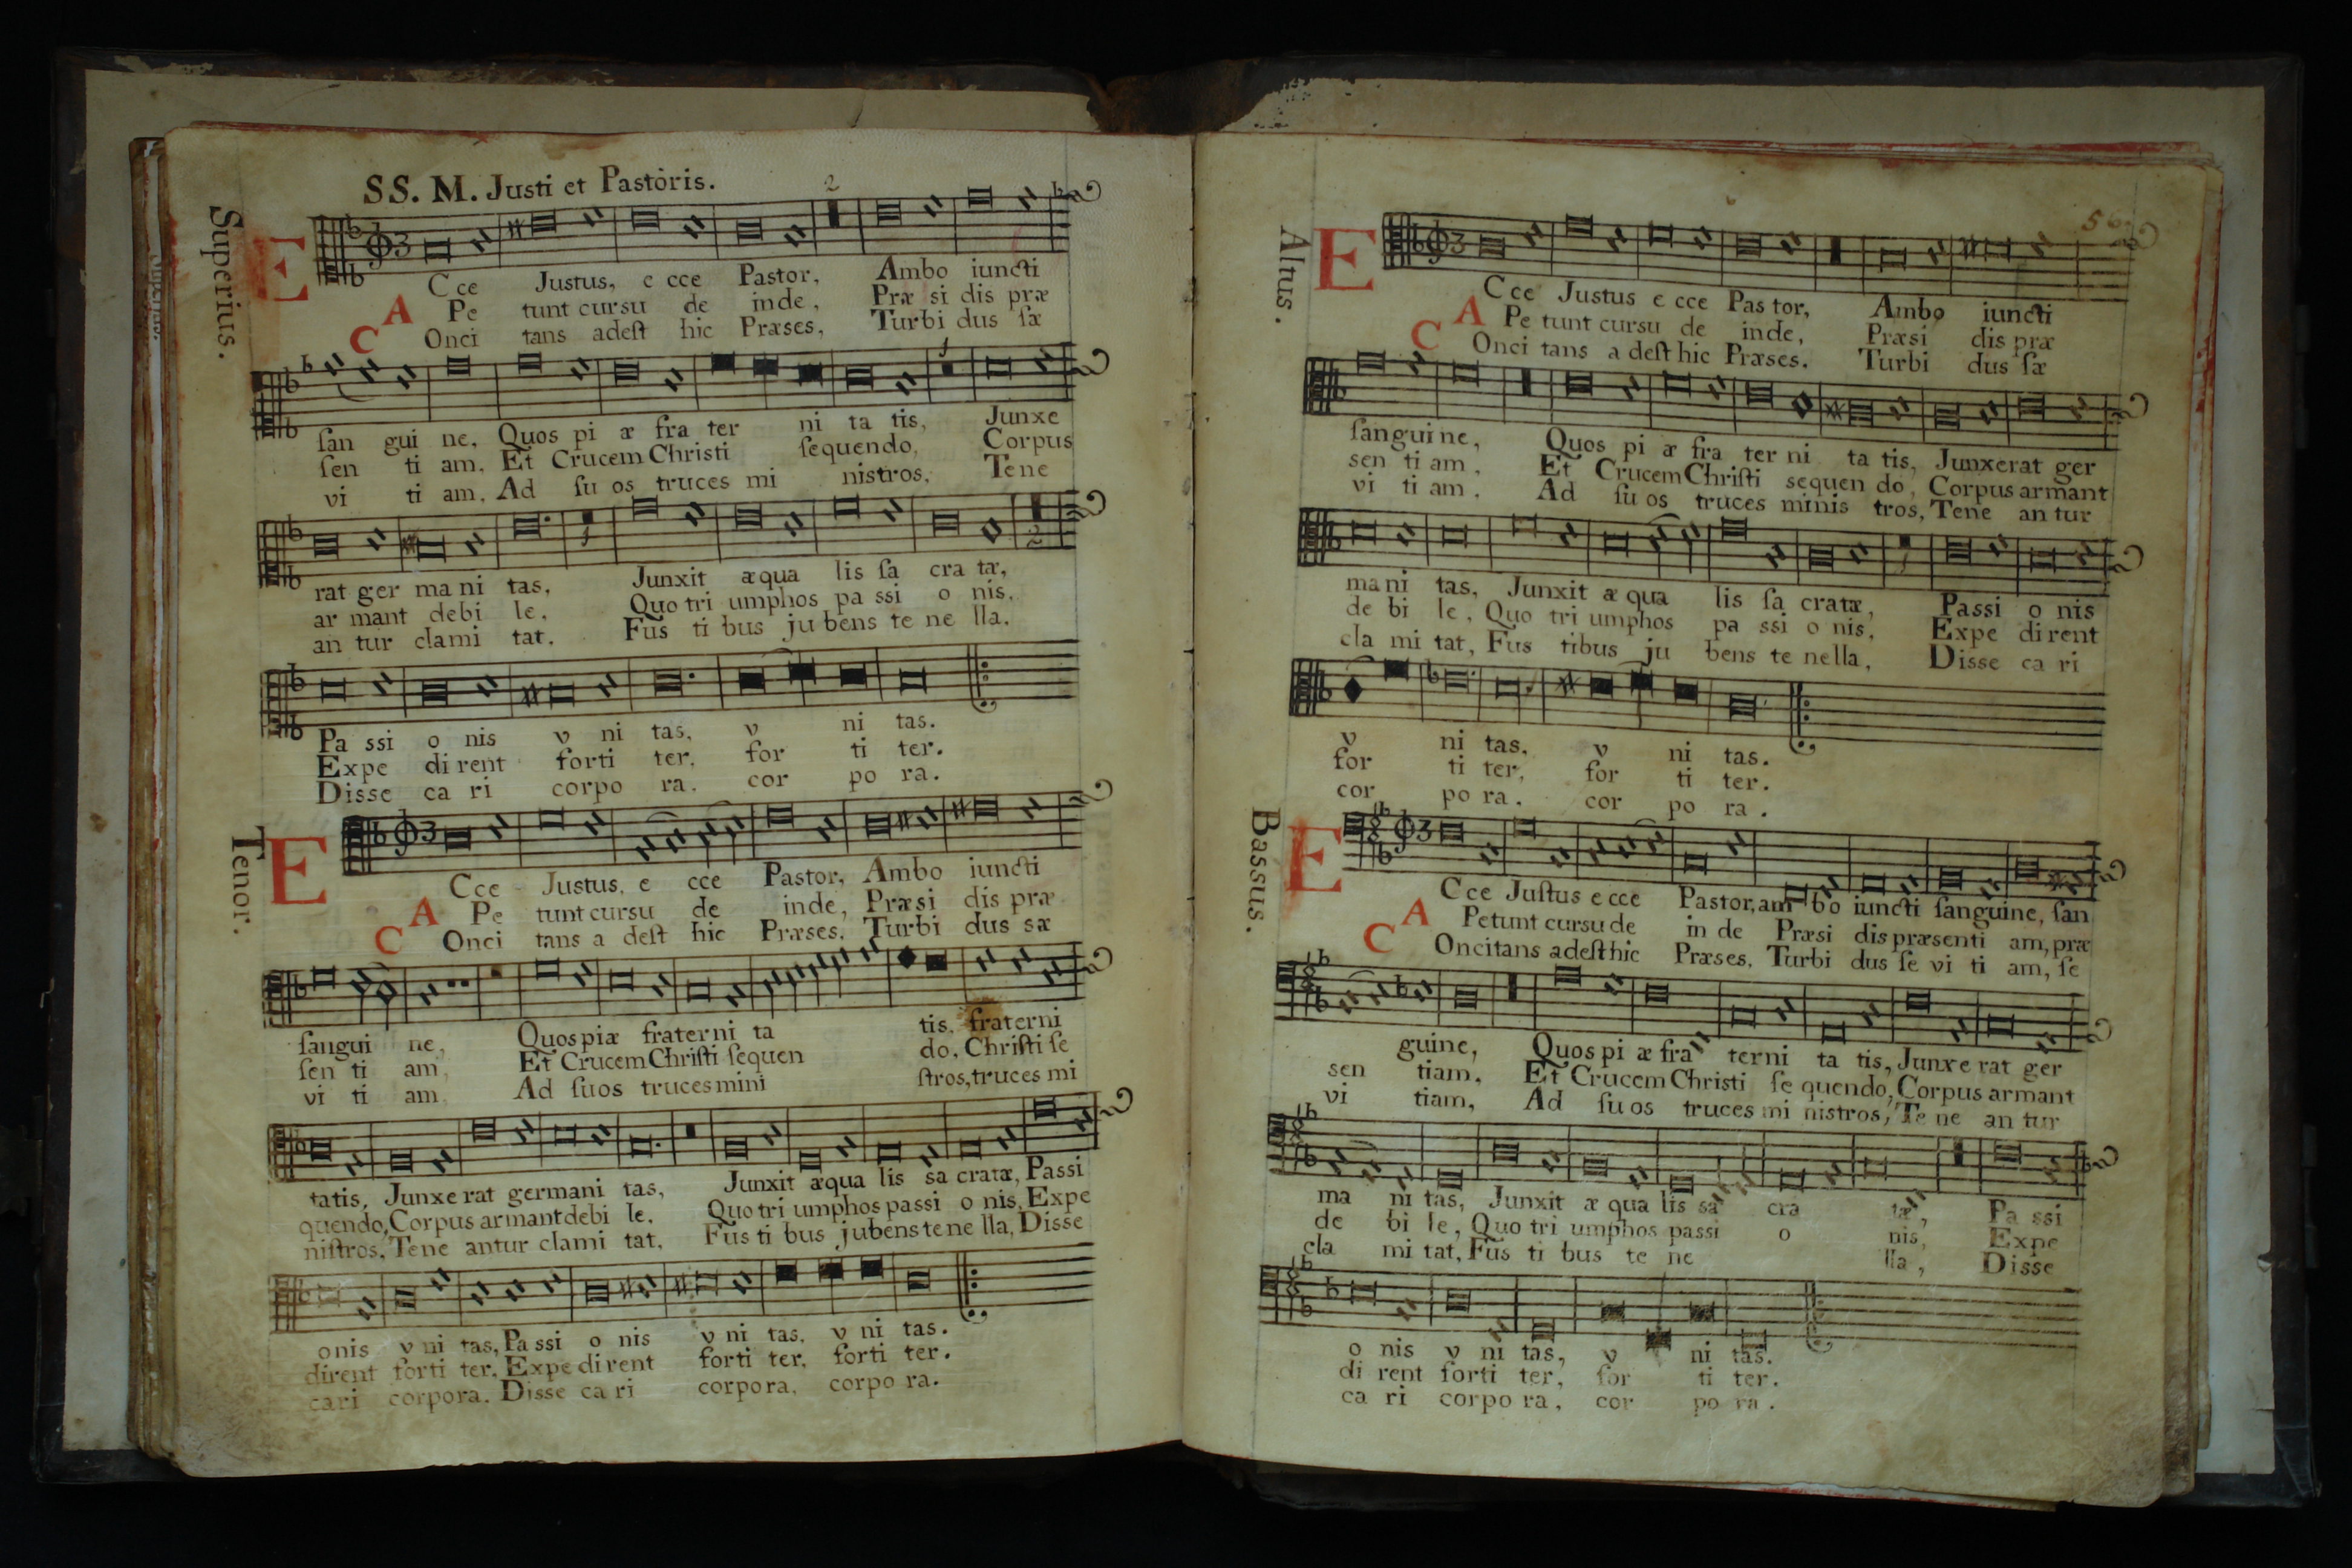 SS. M. Justi et Pastoris.
2
Superius.
E Cce Justus, e cce Pastor, Ambo iuncti
A Pe tunt cursu de inde, Præ si dis præ
C Onci tans adeſt hic Præses, Turbi dus ſæ
ſan gui ne, Quos pi æ fra ter ni ta tis, Junxe
ſen ti am, Et Crucem Christi ſequendo, Corpus
vi ti am, Ad ſu os truces mi nistros, Tene
rat ger ma ni tas, Junxit æqua lis ſa cra tæ,
ar mant debi le, Quo tri umphos pa ssi o nis,
an tur clami tat, Fus ti bus ju bens te ne lla.
Pa ssi o nis v ni tas, v ni tas.
Expe di rent forti ter, for ti ter.
Disse ca ri corpo ra, cor po ra.
Tenor.
E Cce Justus, e cce Pastor, Ambo iuncti
A Pe tunt cursu de inde, Præsi dis præ
C Onci tans a deſt hic Præses, Turbi dus sæ
ſangui ne, Quos piæ fraterni ta tis, fraterni
ſen ti am, Et Crucem Chriſti ſequen do, Chriſti ſe
vi ti am Ad ſuos truces mini ſtros, truces mi
tatis, Junxe rat germani tas, Junxit æqua lis sa cratæ, Passi
quendo, Corpus armant debi le, Quo tri umphos passi o nis, Expe
niſtros, Tene antur clami tat, Fus ti bus jubens te ne lla, Disse
onis v ni tas, Pa ssi o nis v ni tas, v ni tas.
dirent forti ter, Expe di rent forti ter, forti ter.
cari corpora. Disse ca ri corpora, corpo ra.
56
Altus.
E Cce Justus e cce Pas tor, Ambo iuncti
A Pe tunt cursu de inde, Præsi dis præ
C Onci tans a deſt hic Præses. Turbi dus ſæ
ſangui ne, Quos pi æ fra ter ni ta tis, Junxerat ger
sen ti am, Et Crucem Chriſti sequen do, Corpus armant
vi ti am, Ad ſu os truces minis tros, Tene an tur
ma ni tas, Junxit æ qua lis ſa cratæ, Passi o nis
de bi le, Quo tri umphos pa ssi o nis, Expe di rent
cla mi tat, Fus tibus ju bens te nella, Disse ca ri
v ni tas, v ni tas.
for ti ter, for ti ter.
cor po ra, cor po ra.
Bassus.
E Cce Juſtus e cce Pastor, am bo iuncti ſanguine, ſan
A Petunt cursu de in de Præsi dis præsenti am, præ
C Oncitans adeſt hic Præses, Turbi dus ſe vi ti am, ſe
guine, Quos pi æ fra terni ta tis, Junxe rat ger
sen tiam, Et Crucem Christi ſe quendo, Corpus armant
vi tiam, Ad ſu os truces mi nistros, Te ne an tur
ma ni tas, Junxit æ qua lis sa cra tæ, Pa ssi
de bi le, Quo tri umphos passi o nis, Expe
cla mi tat, Fus ti bus te ne lla, Disse
o nis v ni tas, v ni tas.
di rent forti ter, for ti ter.
ca ri corpo ra, cor po ra.